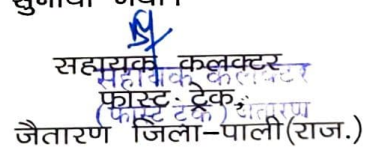 सुनाया गया।
सहायक कलक्टर
सहायक कलक्टर
फास्ट ट्रेक,
(फास्ट ट्रेक) जैतारण
जैतारण जिला-पाली(राज.)